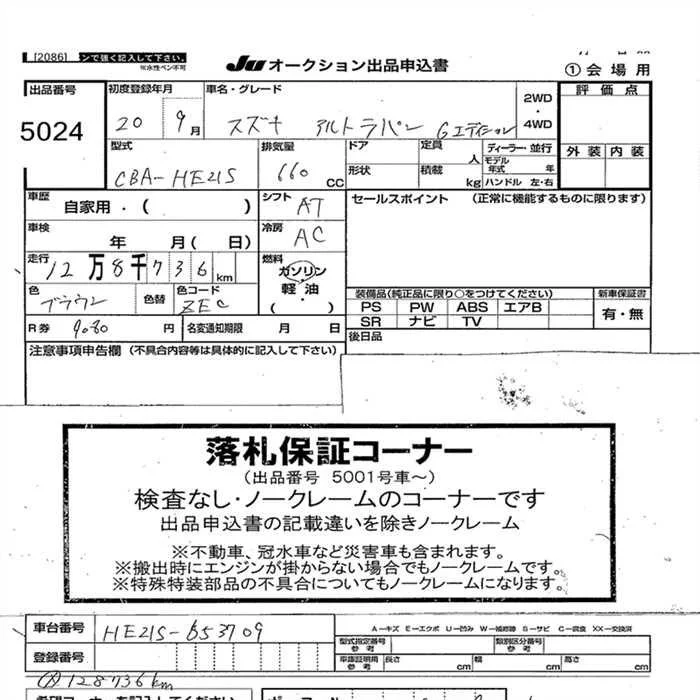 [2086] ンで強く記入して下さい。
※水性ペン不可
JU オークション出品申込書
①会場用
出品番号 初度登録年月 車名・グレード 2WD・4WD 評価点
5024 20 9月 スズキ アルトラパン Gエディション
型式 排気量 ドア 定員 人 ディーラー・並行 外装 内装
CBA-HE21S 660 CC 形状 積載 kg モデル年式 年 ハンドル 左・右
車歴 自家用・( ) シフト AT セールスポイント (正常に機能するものに限ります)
車検 年 月( 日) 冷房 AC
走行 12万8千736km 燃料 ガソリン 軽油・( )
色 ブラウン 色替 色コード ZEC
装備品(純正品に限り○をつけてください) 新車保証書
PS PW ABS エアB 有・無
SR ナビ TV
R券 9080 円 名変通知期限 月 日 後日品
注意事項申告欄 (不具合内容等は具体的に記入して下さい)
落札保証コーナー
(出品番号 5001号車~)
検査なし・ノークレームのコーナーです
出品申込書の記載違いを除きノークレーム
※不動車、冠水車など災害車も含まれます。
※搬出時にエンジンが掛からない場合でもノークレームです。
※特殊特装部品の不具合についてもノークレームになります。
車台番号 HE21S-653709 A-キズ E-エクボ U-凹み W-補修跡 S-サビ C-腐食 XX-交換済
型式指定番号 参考 類別区分番号 参考
登録番号 車庫証明用 参考 長さ cm 幅 cm 高さ cm
128736km